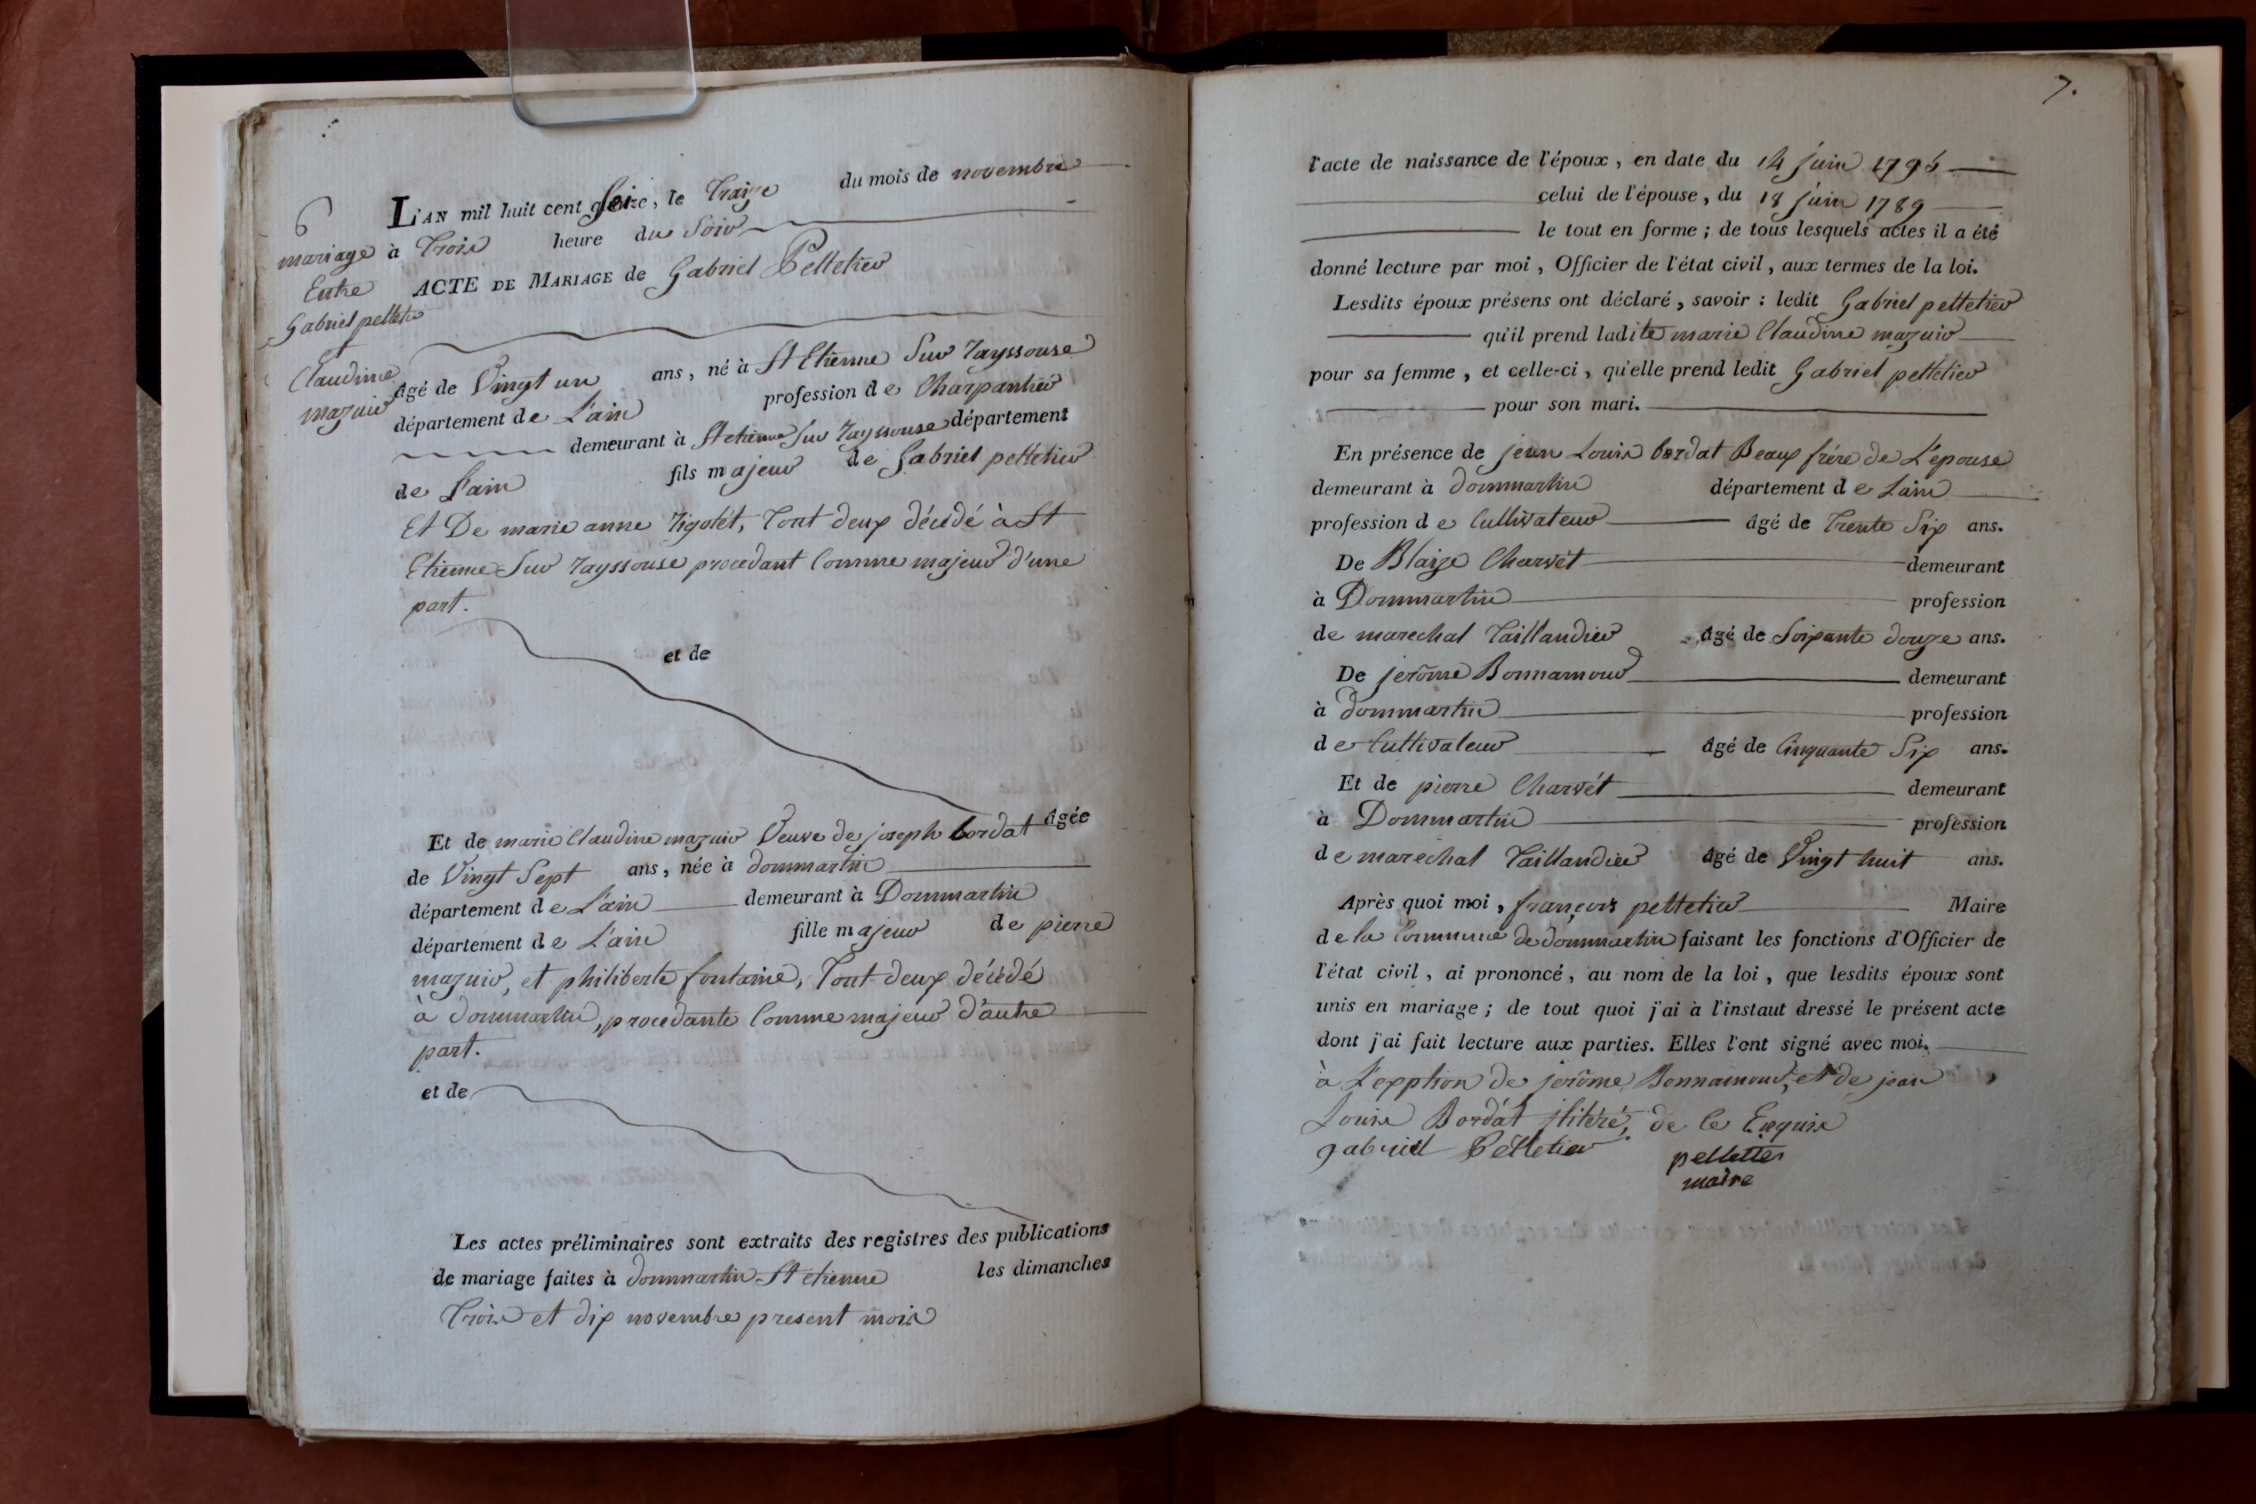 6
mariage
Entre
Gabriel pelletier
Claudine
mazuir
L'AN mil huit cent seize, le Traize du mois de novembre
à Trois heure du Soir
ACTE DE MARIAGE de Gabriel Pelletier
âgé de Vingt un ans, né à St Etienne Sur Rayssouse
département de L'ain profession de Charpantier
demeurant à St etienne Sur Rayssouse département
de L'ain fils majeur de Gabriel pelletier
Et De marie anne Rigolét, Tout deux décédé à St
Etienne Sur Rayssouse procedant Comme majeur d'une
part.
et de
Et de marie Claudine mazuir Veuve de joseph bordat âgée
de Vingt Sept ans, née à dommartin
département de L'ain demeurant à Dommartin
département de L'ain fille majeur de pierre
mazuir, et philiberte fontaine, Tout deux décédé
à dommartin, procedante Comme majeur d'autre
part.
et de
Les actes préliminaires sont extraits des registres des publications
de mariage faites à dommartin St etienne les dimanches
Trois et dix novembre present mois
7.
l'acte de naissance de l'époux, en date du 14 juin 1795
celui de l'épouse, du 18 juin 1789
le tout en forme ; de tous lesquels actes il a été
donné lecture par moi, Officier de l'état civil, aux termes de la loi.
Lesdits époux présens ont déclaré, savoir : ledit Gabriel pelletier
qu'il prend ladite marie Claudine mazuir
pour sa femme, et celle-ci, qu'elle prend ledit Gabriel pelletier
pour son mari.
En présence de jean Louis bordat Beaux frére de L'epouse
demeurant à dommartin département de Lain
profession de Cultivateur âgé de Trente Six ans.
De Blaize Charvét demeurant
à Dommartin profession
de marechal Taillandier âgé de Soixante douze ans.
De jerôme Bonnamour demeurant
à dommartin profession
de Cultivateur âgé de Cinquante Six ans.
Et de pierre Charvét demeurant
à Dommartin profession
de marechal Taillandier âgé de Vingt huit ans.
Après quoi moi, françois pelletier Maire
de la Commune de dommartin faisant les fonctions d'Officier de
l'état civil, ai prononcé, au nom de la loi, que lesdits époux sont
unis en mariage ; de tout quoi j'ai à l'instaut dressé le présent acte
dont j'ai fait lecture aux parties. Elles l'ont signé avec moi.
à L'exption de jerôme Bonnamour, et de jean
Louis Bordát jlitéré, de ce Enquis
gabriel Pelletier pelletier
maire